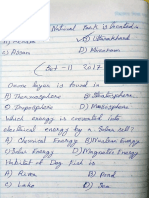 National Park is located in
A) Kerala B) Uttarakhand
c) Assam D) Mizoram
(Set-1) 2017
Ozone layer is found in
A) Thermosphere B) Stratosphere
C) Troposphere D) Mesosphere
Which energy is converted into
electrical energy by a Solar cell?
A) Chemical Energy B) Nuclear Energy
C) Solar Energy D) Magnetic Energy
Habitat of Dog Fish is
A) River B) Pond
C) Lake D) Sea